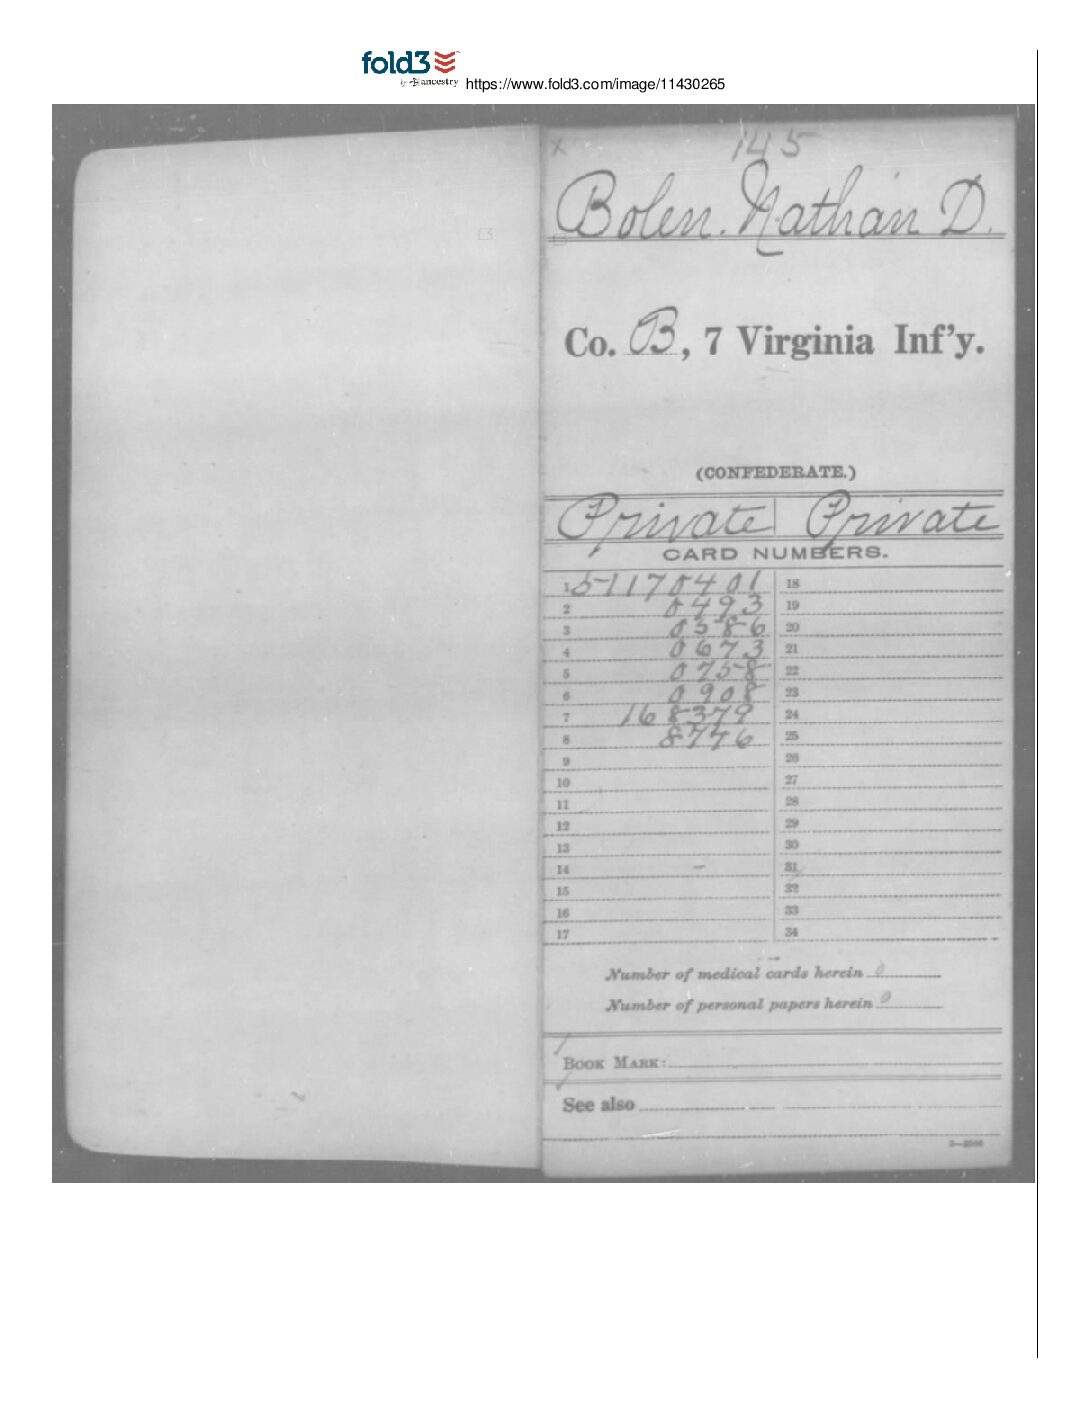 fold3
by ancestry
https://www.fold3.com/image/11430265
x 145
Bolen. Nathan D.
Co. B, 7 Virginia Inf'y.
(CONFEDERATE.)
Private Private
CARD NUMBERS.
1 51170401 18
2 0493 19
3 0586 20
4 0673 21
5 0758 22
6 0908 23
7 168379 24
8 8746 25
9 26
10 27
11 28
12 29
13 30
14 31
15 32
16 33
17 34
Number of medical cards herein 0
Number of personal papers herein 0
BOOK MARK:
See also